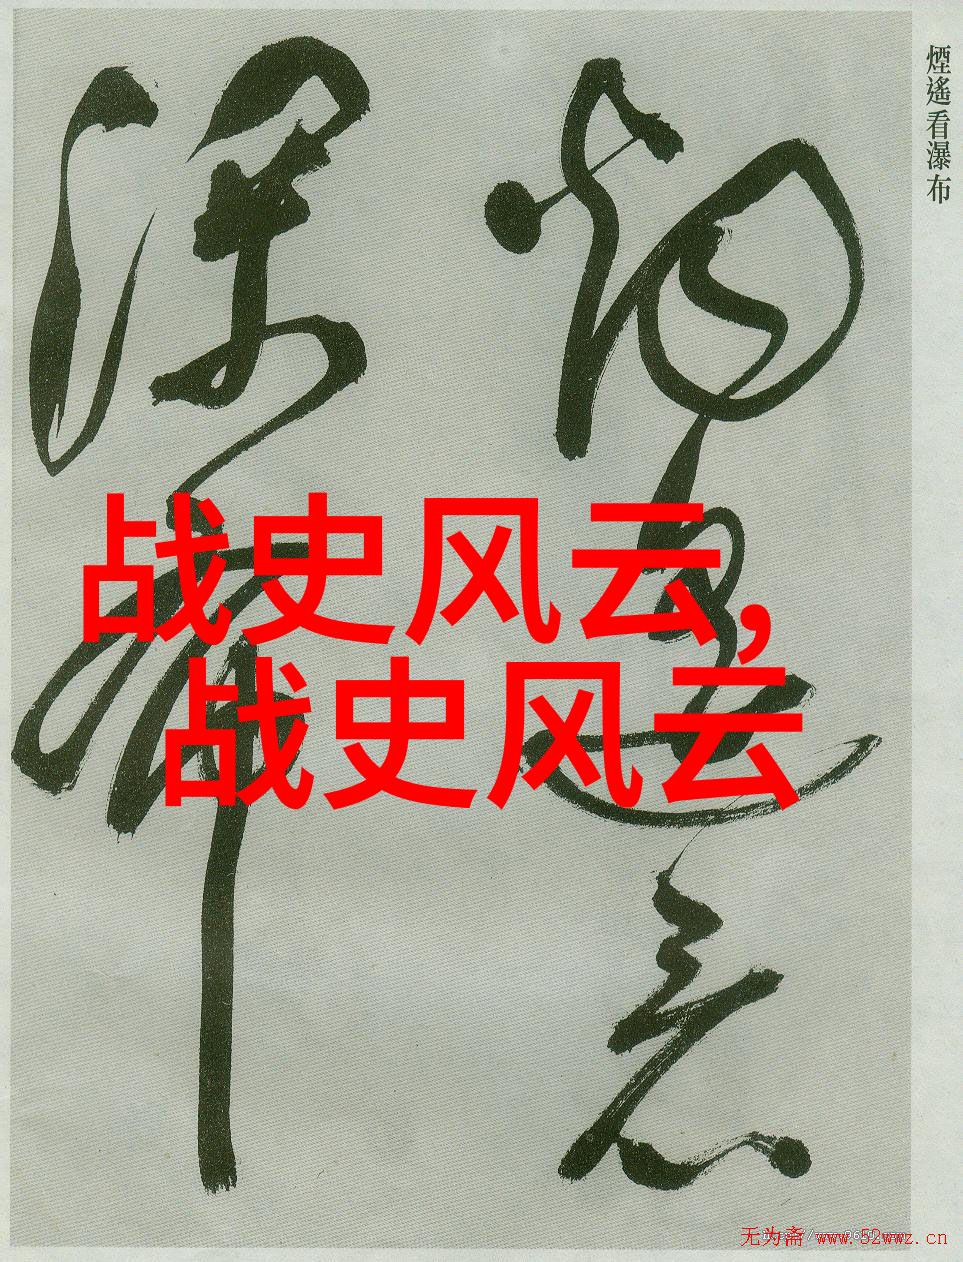 煙遙看瀑布
烟遙看
瀑布
战史风云,
战史风云
无为斋 www.52wwz.cn